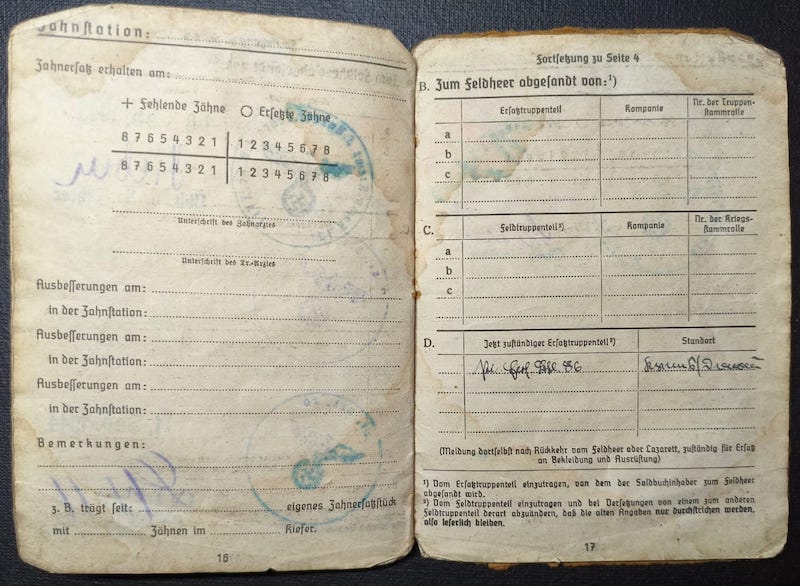 Zahnstation:
Zahnersatz erhalten am:
+ Fehlende Zähne ○ Ersetzte Zähne
8 7 6 5 4 3 2 1 1 2 3 4 5 6 7 8
8 7 6 5 4 3 2 1 1 2 3 4 5 6 7 8
Unterschrift des Zahnarztes
Unterschrift des Tr.-Arztes
Ausbesserungen am:
in der Zahnstation:
Ausbesserungen am:
in der Zahnstation:
Ausbesserungen am:
in der Zahnstation:
Bemerkungen:
z. B. trägt seit: eigenes Zahnersatzstück
mit Zähnen im Kiefer.
16
Fortsetzung zu Seite 4
B. Zum Feldheer abgesandt von:¹)
Ersatztruppenteil Kompanie Nr. der Truppen-
stammrolle
a
b
c
C. Feldtruppenteil²) Kompanie Nr. der Kriegs-
stammrolle
a
b
c
D. Jetzt zuständiger Ersatztruppenteil²) Standort
Pi. Ers. Btl. 86
(Meldung dortselbst nach Rückkehr vom Feldheer oder Lazarett, zuständig für Ersatz
an Bekleidung und Ausrüstung)
¹) Vom Ersatztruppenteil einzutragen, von dem der Soldbuchinhaber zum Feldheer
abgesandt wird.
²) Vom Feldtruppenteil einzutragen und bei Versetzungen von einem zum anderen
Feldtruppenteil derart abzuändern, daß die alten Angaben nur durchstrichen werden,
also leserlich bleiben.
17